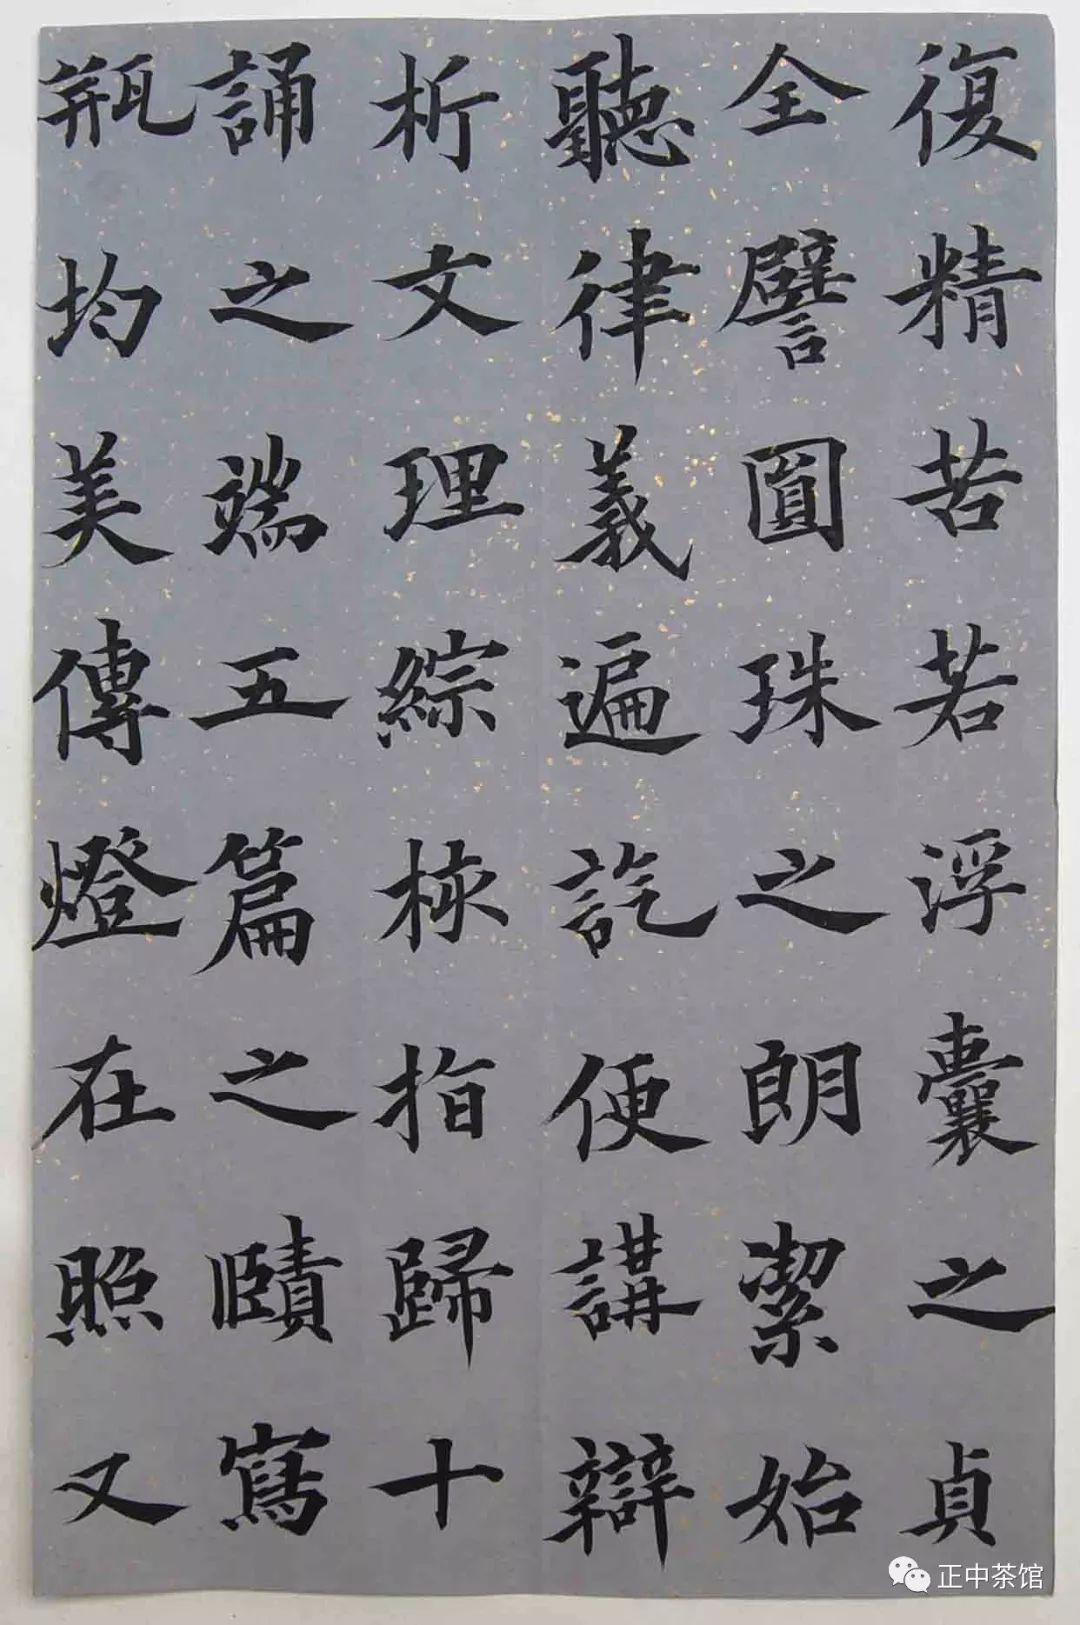 復精苦若浮囊之貞
全譬圓珠之朗潔始
聽律義遍訖便講辯
析文理綜極指歸十
誦之端五篇之賾寫
瓶均美傳燈在照又
正中茶馆